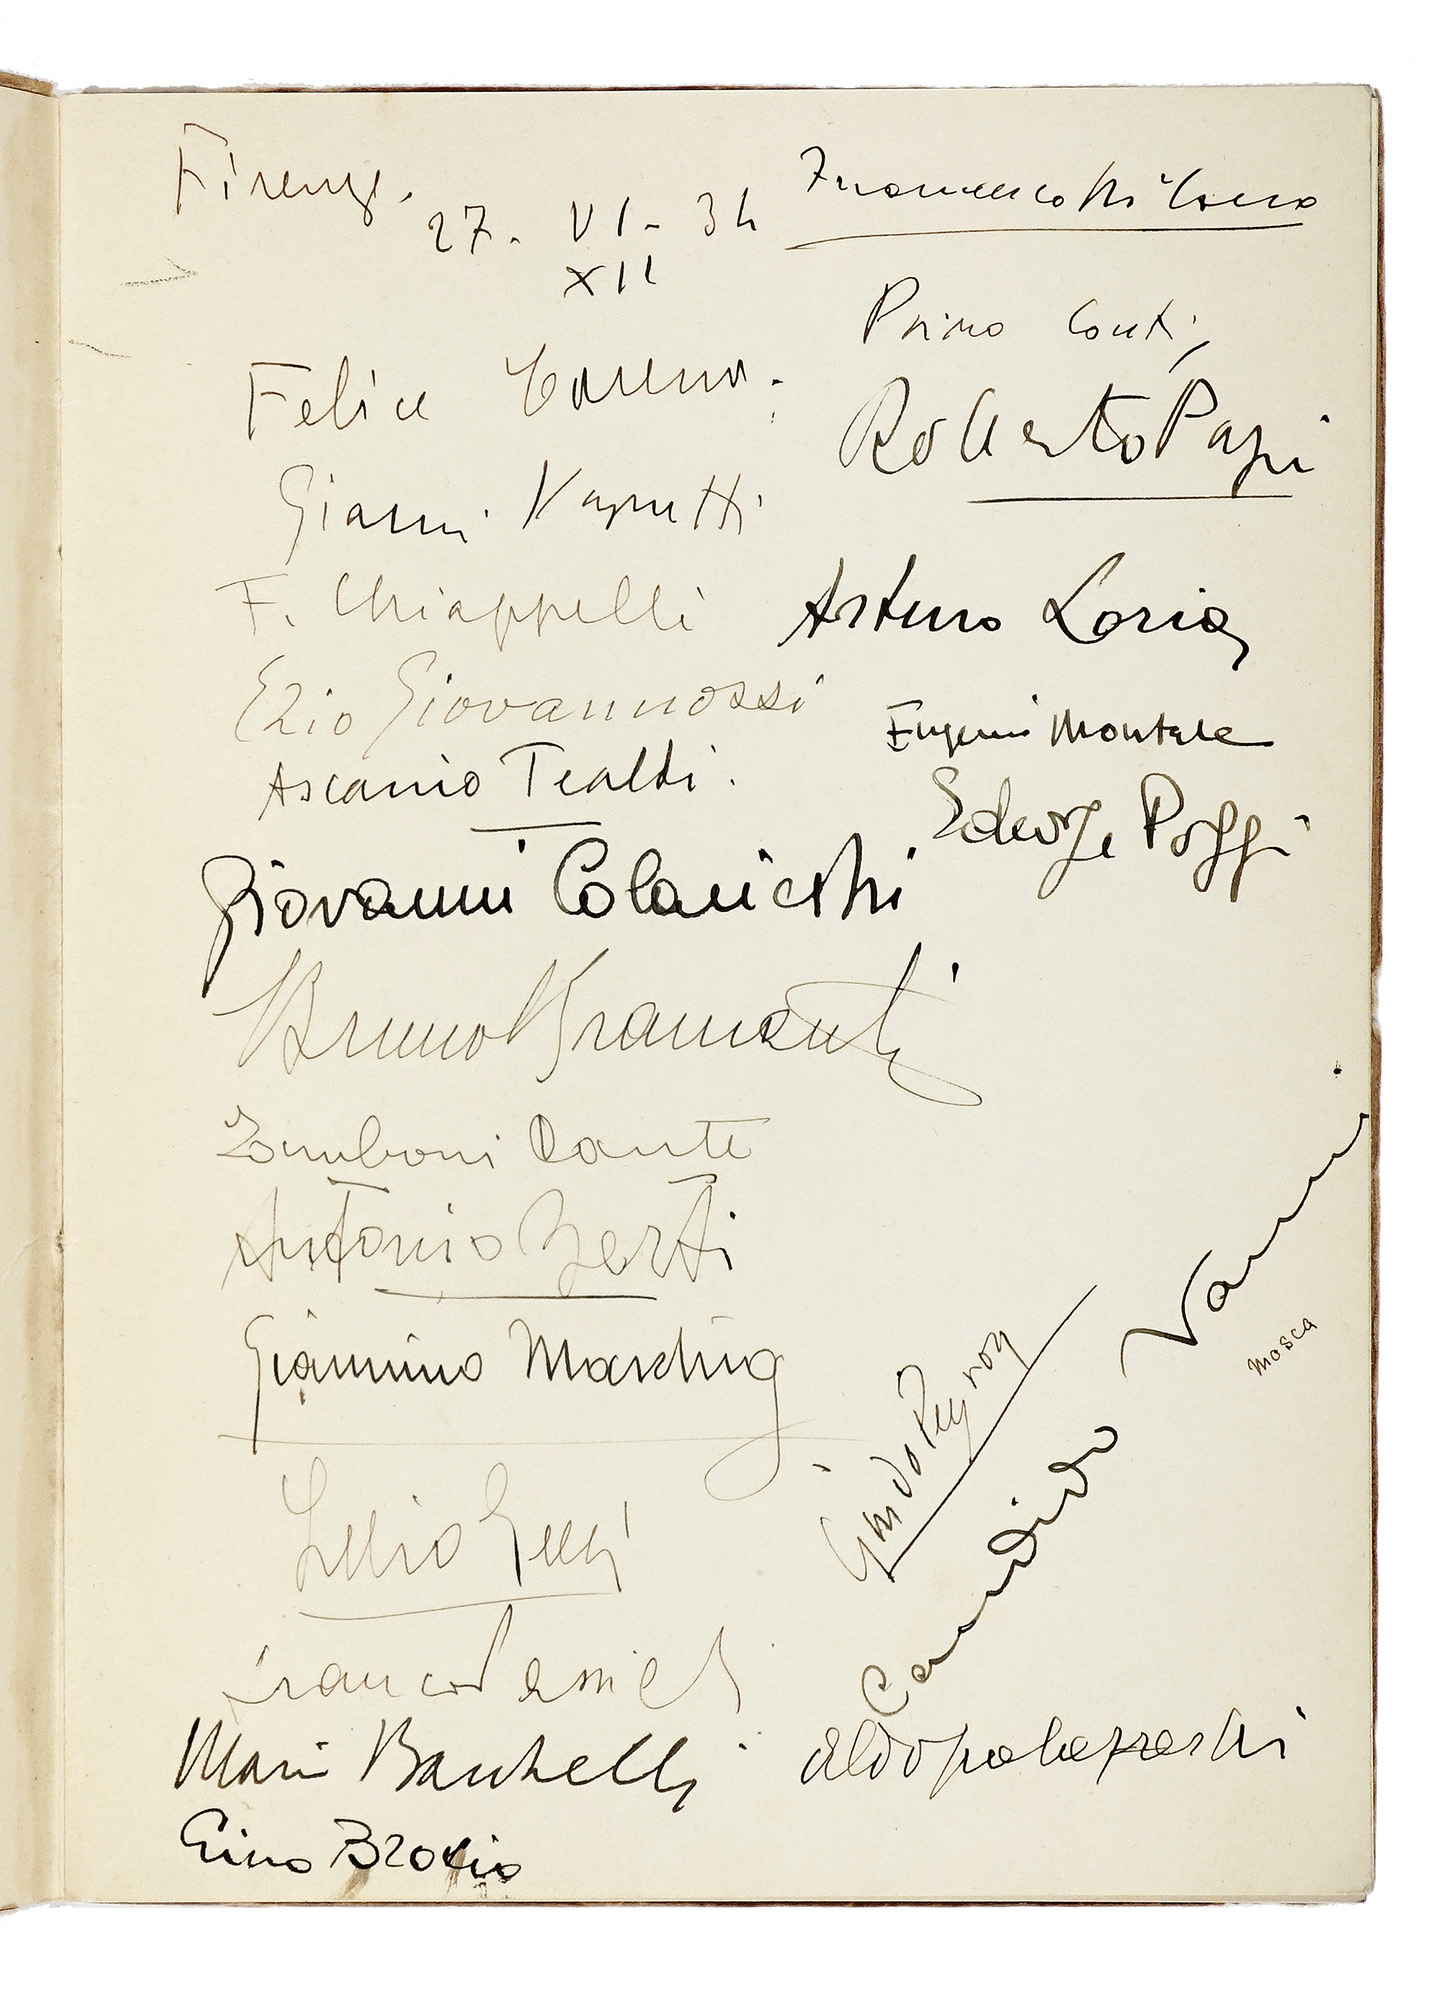 Firenze.
27. VI. 34
XII
Felice Carena.
Gianni Vagnetti
F. Chiappelli
Ezio Giovannozzi
Ascanio Tealdi.
Giovanni Colacicchi
Bruno Bramanti
Zamboni Dante
Antonio Berti
Giannino Marchig
Franco Dani
Mario
Gino Brosio
Francesco
Primo Conti,
Roberto Papi
Arturo Loria
Eugenio Montale
Edwige Poggi
Guido Peyron
Candido Vanni
Mosca
aldo palazzeschi